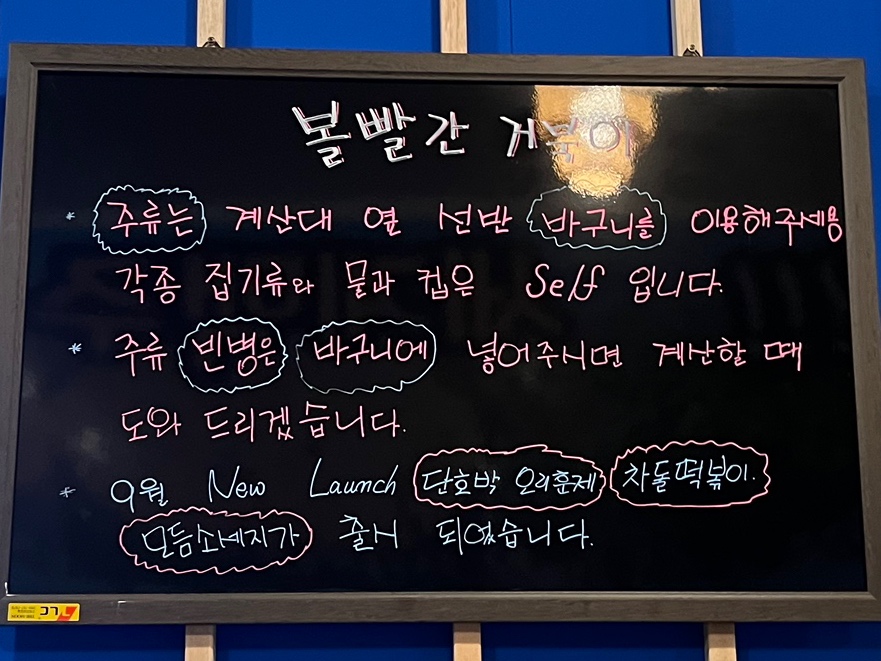 볼빨간 거북이
* 주류는 계산대 옆 선반 바구니를 이용해주세용
각종 집기류와 물과 컵은 Self 입니다.
* 주류 빈병은 바구니에 넣어주시면 계산할 때
도와 드리겠습니다.
* 9월 New Launch 단호박 오리훈제 차돌떡볶이.
모듬소세지가 출시 되었습니다.